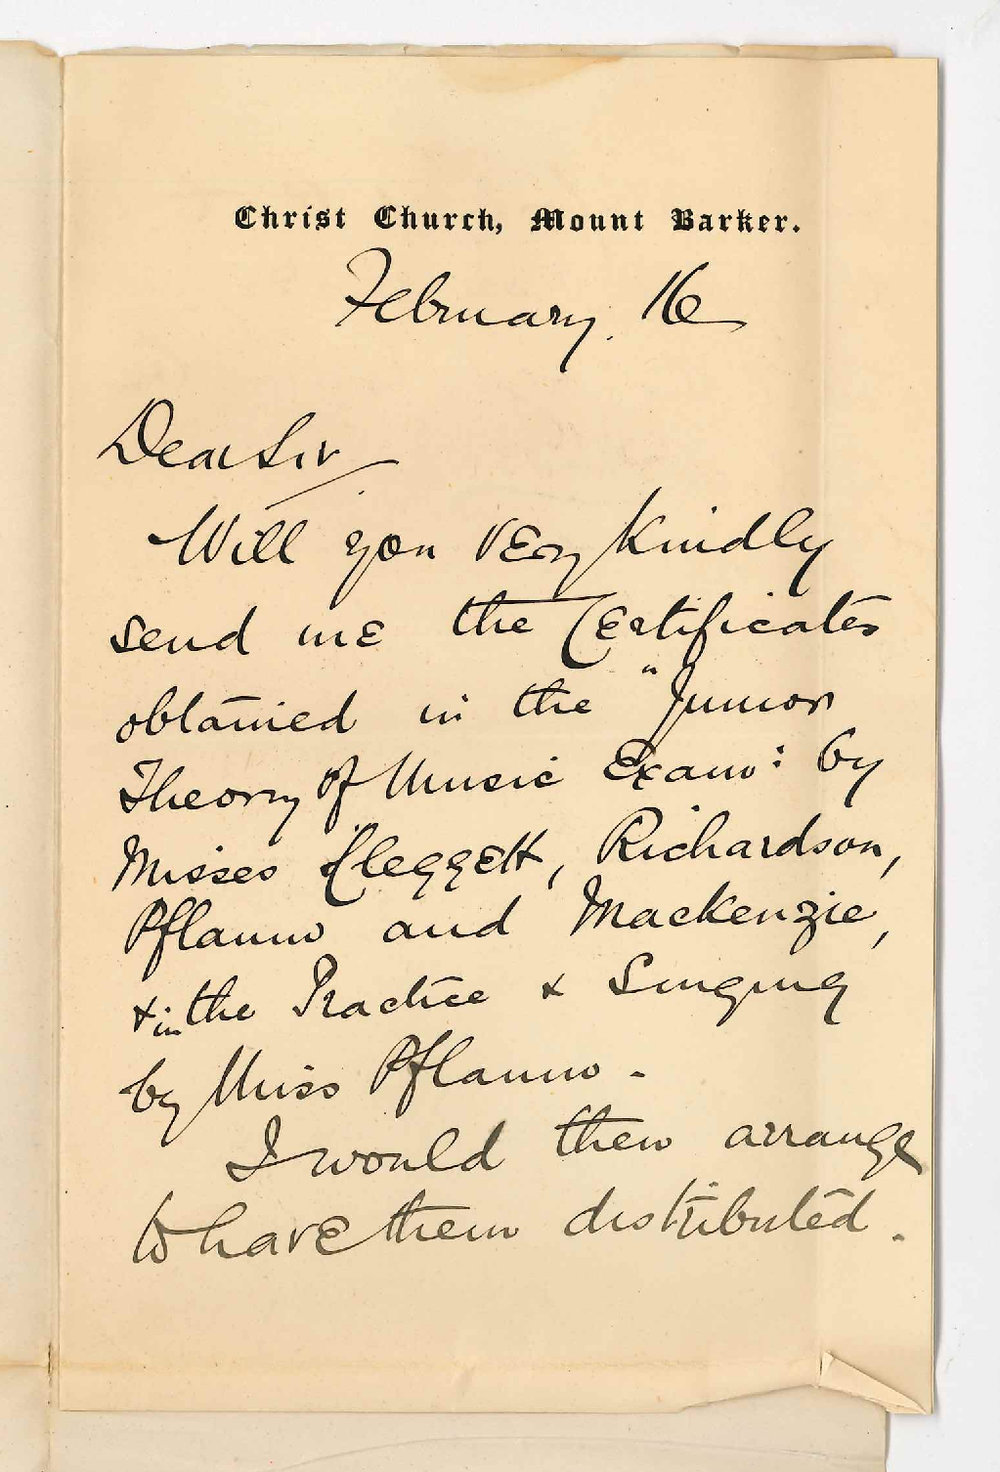 Christ Church, Mount Barker.
February. 16
Dear Sir
Will you very kindly
send me the Certificates
obtained in the "Junior
Theory of Music Exam: by
Misses Cleggett, Richardson,
Pflaum and Mackenzie,
& in the Practice & Singing
by Miss Pflaum -
I would then arrange
to have them distributed.